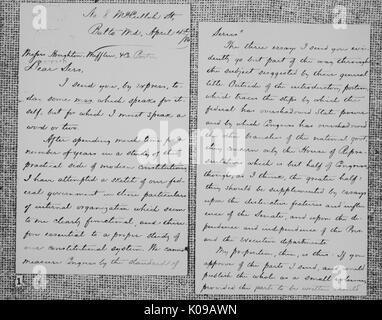 No. 8 McCulloh St.,
Balto. Md., April 4th
Messrs. Houghton, Mifflin, & Co.
Dear Sirs,
I send you, by express, to-
day some mss. which speaks for it-
self, but for which I must speak a
word or two.
After spending much time for a
number of years in a study of the
practical side of modern constitutions,
I have attempted a sketch of our fed-
eral government in those particulars
of internal organization which seem
to me clearly functional, and there-
fore essential to a proper study of
our constitutional system. The
measure Congress by the standards of
1
Series"
The three essays I send you evi-
dently go but part of the way through
the subject suggested by their general
title. Outside of the introductory portion,
which traces the steps by which the
federal has overshadowed State powers
and by which Congress has overshadowed
the other branches of the national govt.,
they concern only the House of Repre-
sentatives, which is but half of Congress
though, as I think, the greater half:
they should be supplemented by essays
upon the features and influ-
ence of the Senate, and upon the de-
pendence and independence of the Pres.
and the executive departments.
My proposition, then, is this: If you
approve of the parts I send, and would
publish the whole as a small volume
provided the parts to be written
alamy
Image ID: K09AWN
www.alamy.com